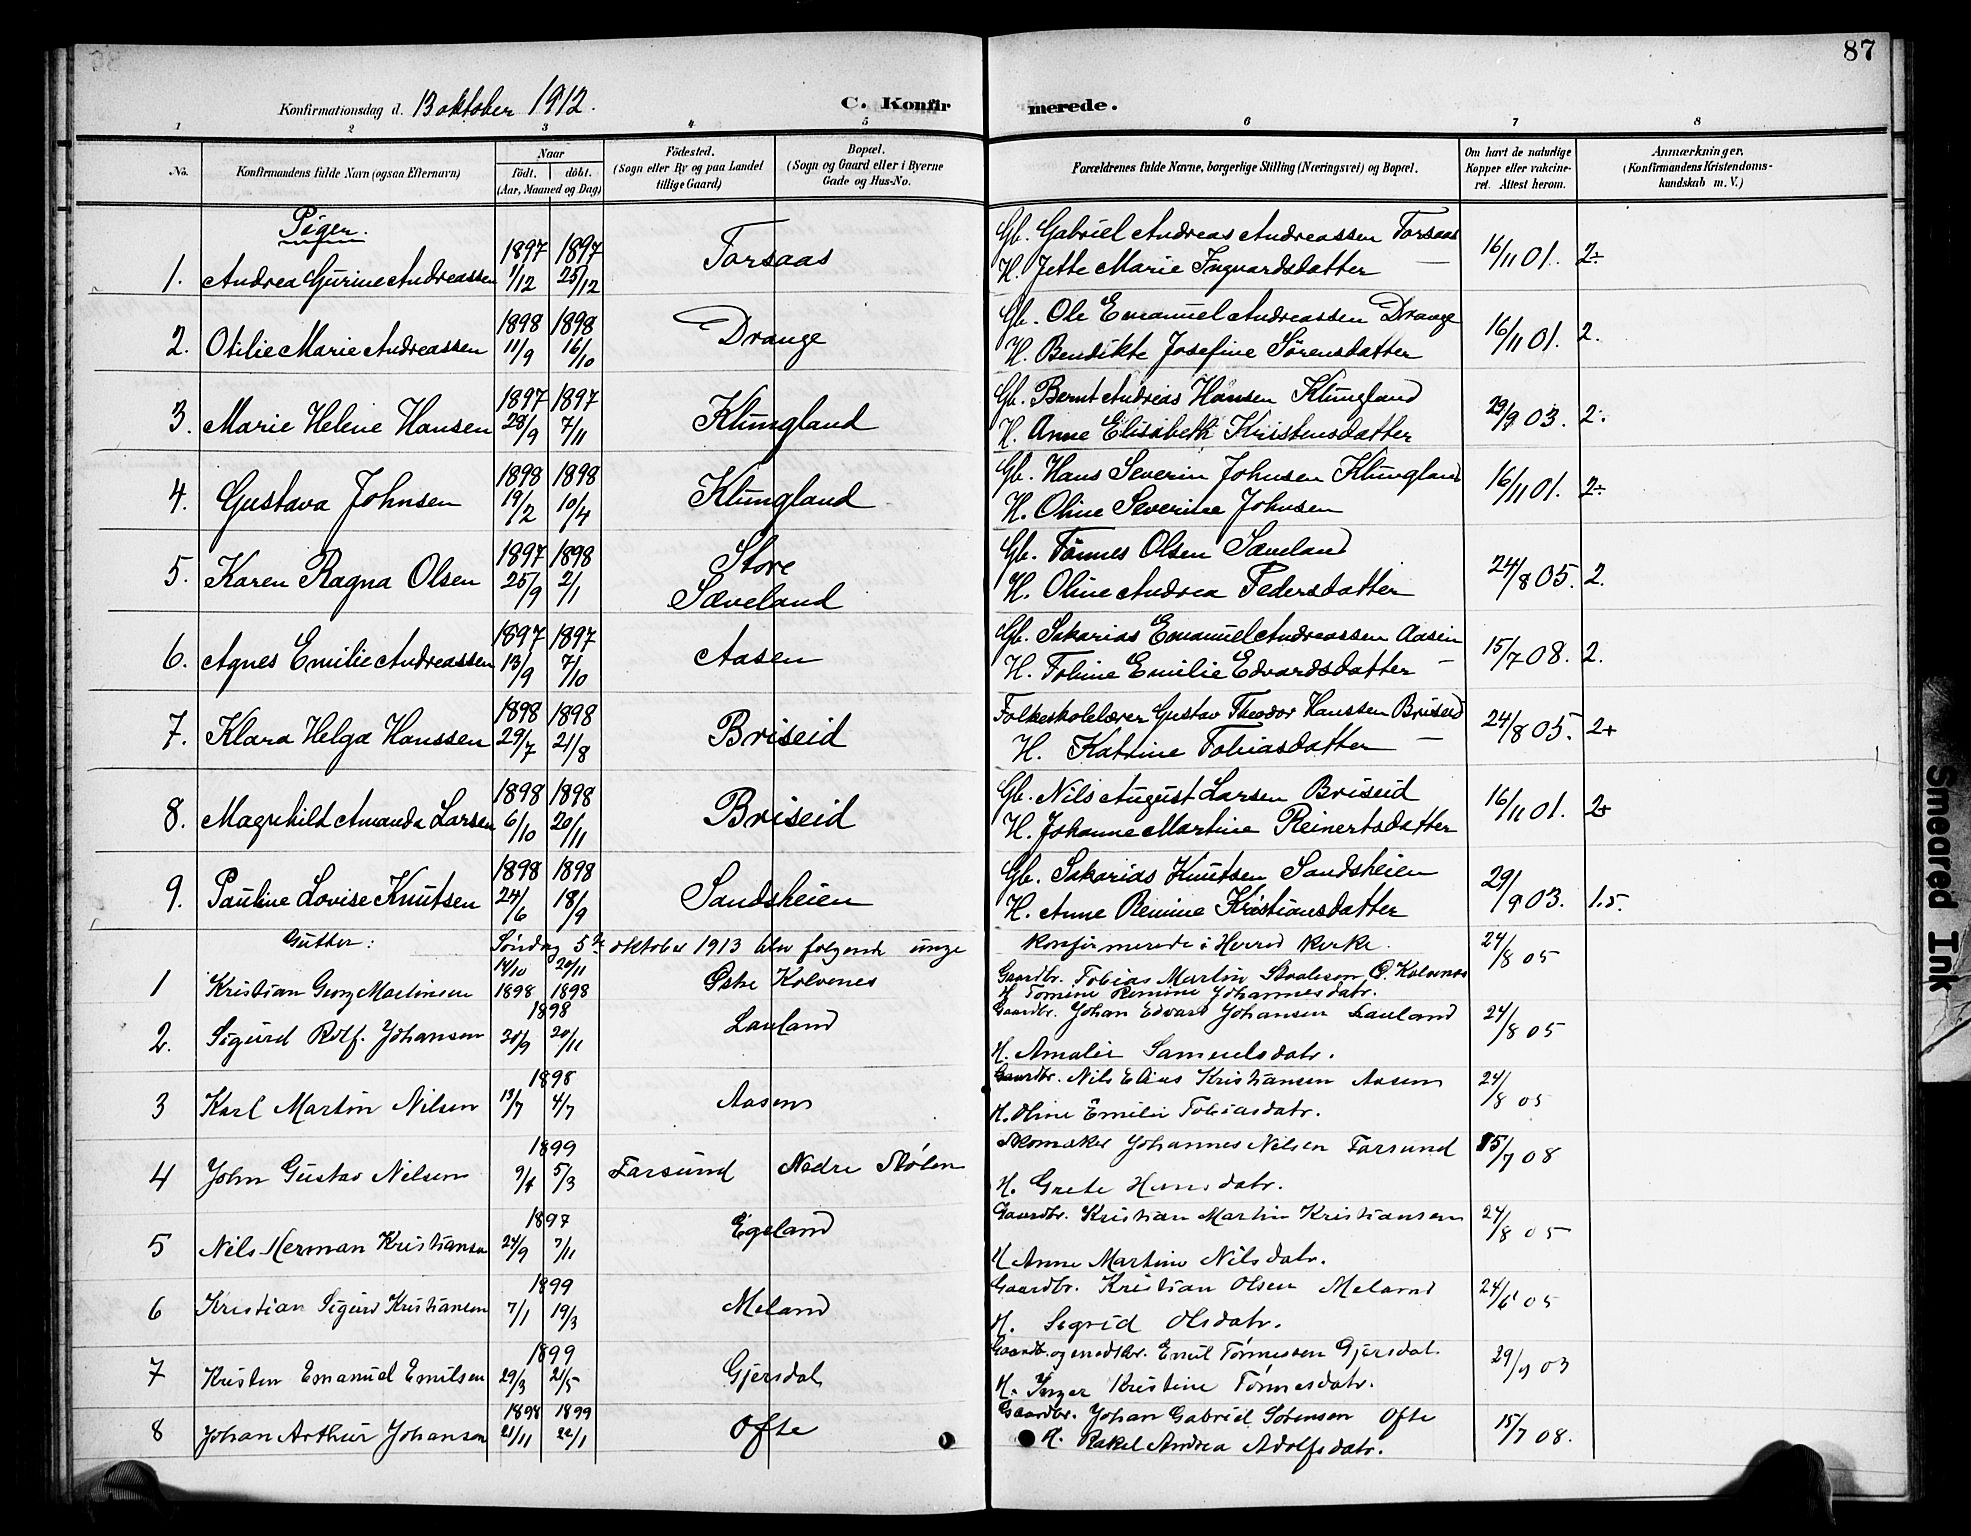 87
Konfirmationsdag d. 13 oktober 1912. C. Konfirmerede.
1 2 3 4 5 6 7 8
No. Konfirmandens fulde Navn (ogsaa Efternavn) Naar født. døbt. (Aar, Maaned og Dag) Fødested. (Sogn eller By og paa Landet tillige Gaard) Bopæl. (Sogn og Gaard eller i Byerne Gade og Hus-No. Forældrenes fulde Navne, borgerlige Stilling (Næringsvei) og Bopæl. Om havt de naturlige Kopper eller vakcineret. Attest herom. Anmærkninger. (Konfirmandens Kristendomskundskab m. V.)
Piger.
1. Andrea Gurine Andreassen 1897 1/12 1897 25/12 Torsaas Gb. Gabriel Andreas Andreassen Torsaas
H. Jette Marie Ingvardsdatter — 16/11 01. 2+
2. Otilie Marie Andreassen 1898 11/9 1898 16/10 Drange Gb. Ole Emanuel Andreassen Drange
H. Bendikte Josefine Sørensdatter 16/11 01. 2.
3. Marie Helene Hansen 1897 28/9 1897 7/11 Klungland Gb. Bernt Andreas Hansen Klungland
H. Anne Elisabeth Kristensdatter 29/9 03. 2.
4. Gustava Johnsen 1898 19/2 1898 10/4 Klungland Gb. Hans Severin Johnsen Klungland
H. Oline Severine Johnsen 16/11 01. 2+
5. Karen Ragna Olsen 1897 25/9 1898 2/1 Store Sæveland Gb. Tønnes Olsen Sæveland
H. Oline Andrea Pedersdatter 24/8 05. 2.
6. Agnes Emilie Andreassen 1897 13/9 1897 7/10 Aasen Gb. Sakarias Emanuel Andreassen Aasen
H. Toline Emilie Edvardsdatter — 15/7 08. 2.
7. Klara Helga Hanssen 1898 29/7 1898 21/8 Briseid Folkeskolelærer Gustav Theodor Hanssen Briseid
H. Katrine Tobiasdatter — 24/8 05. 2+
8. Magnhild Amanda Larsen 1898 6/10 1898 20/11 Briseid Gb. Nils August Larsen Briseid
H. Johanne Martine Reinertsdatter 16/11 01. 2+
9. Pauline Lovise Knutsen 1898 24/6 1898 18/9 Sandsheien Gb. Sakarias Knutsen Sandsheien
H. Anne Remine Kristiansdatter 29/9 03. 1.5.
Gutter: Søndag 5te oktober 1913 blev følgende unge konfirmerede i Herred kirke.
1 Kristian Georg Martinsen 14/10 1898 20/11 1898 Østre Kolvenes Gaardbr. Tobias Martin Ø. Kolvenes
H. Tomine Remine Johannesdatr. 24/8 05
2. Sigurd Rolf. Johansen 1898 30/9 20/11 Lauland Gaardbr. Johan Edvard Johansen Lauland
H. Amalie Samuelsdatr. 24/8 05
3 Karl Martin Nilsen 1898 13/7 4/7 Aasen Gaardbr. Nils Elias Kristiansen Aasen
H. Oline Emilie Tobiasdatr. 24/8 05
4 John Gustav Nilsen 1899 9/1 5/3 Farsund Nedre Stølen Skomaker Johannes Nilsen Farsund
H. Grete Hansdatr. 15/7 08
5 Nils Herman Kristiansen 1897 24/9 7/11 Egeland Gaardbr. Kristian Martin Kristiansen
H Anne Martine Nilsdatr. 24/8 05
6 Kristian Sigurd Kristiansen 1899 7/1 19/3 Meland Gaardbr. Kristian Olsen Meland
H. Sigrid Olsdatr. 24/8 05
7 Kristen Emanuel Emilsen 1899 29/3 21/5 Gjersdal Gaardbr. og Emil Tønnessen Gjersdal
H. Inger Kristine Tønnesdatr. 29/9 03
8 Johan Arthur Johansen 1898 21/11 1899 22/1 Ofte Gaardbr. Johan Gabriel Sørensen Ofte
H. Rakel Andrea Adolfsdatr. 15/7 08.
Smeared Ink